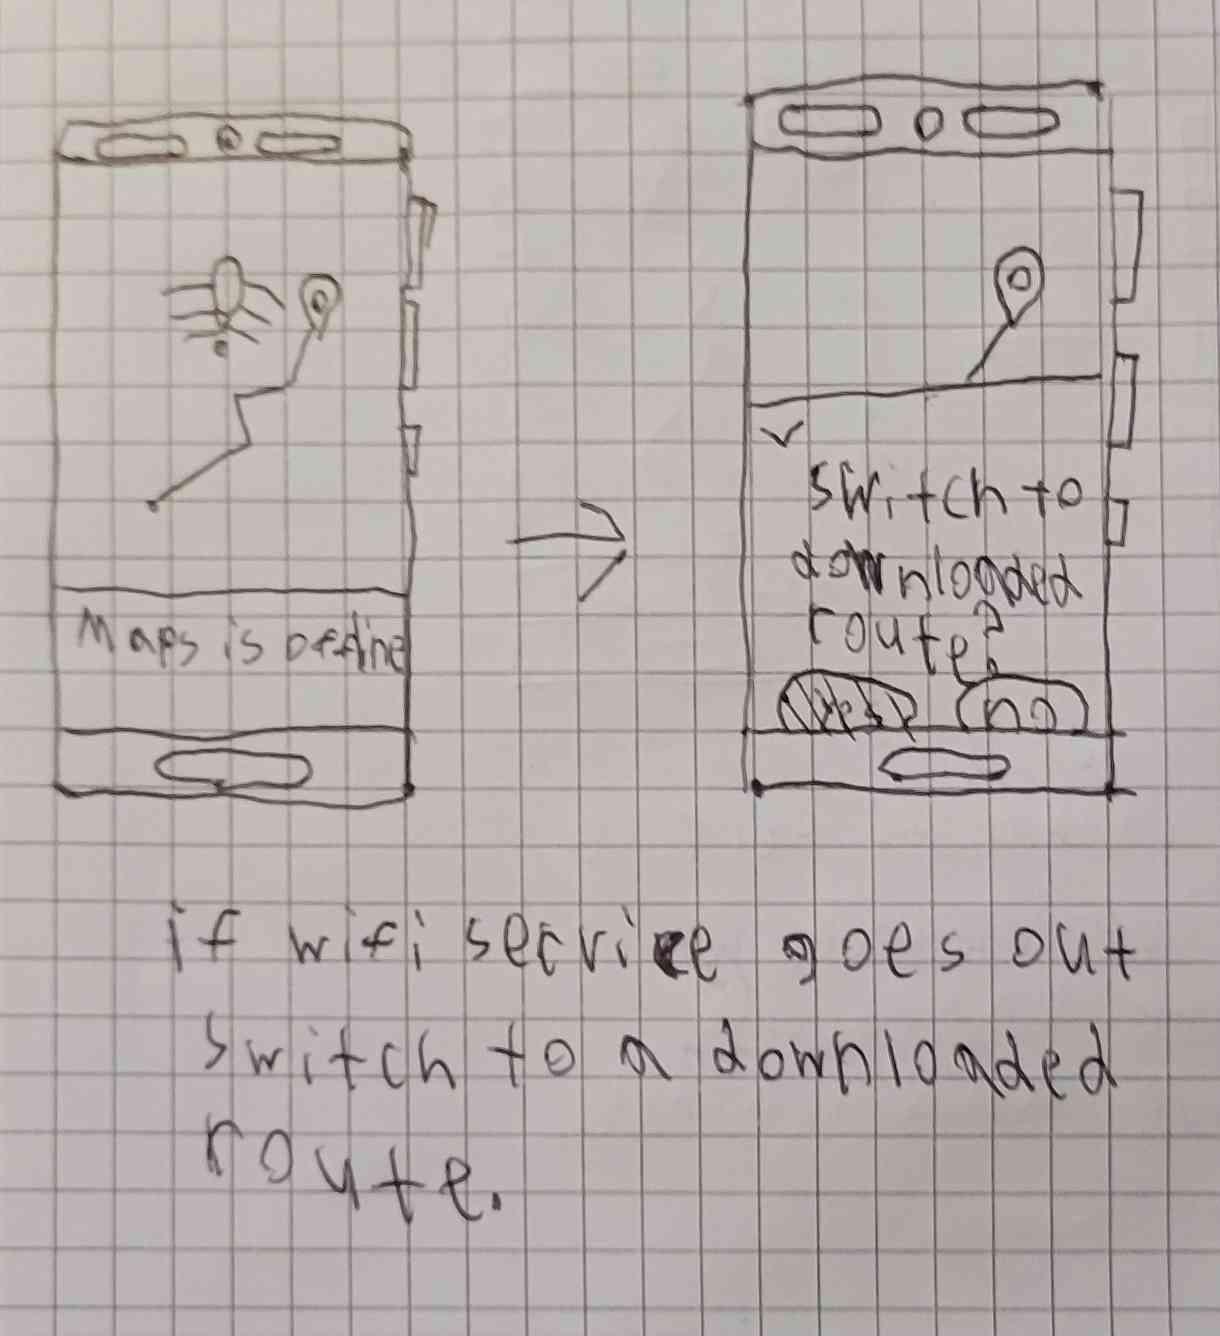 Maps is offline
switch to
downloaded
route?
yes no
if wifi service goes out
switch to a downloaded
route.